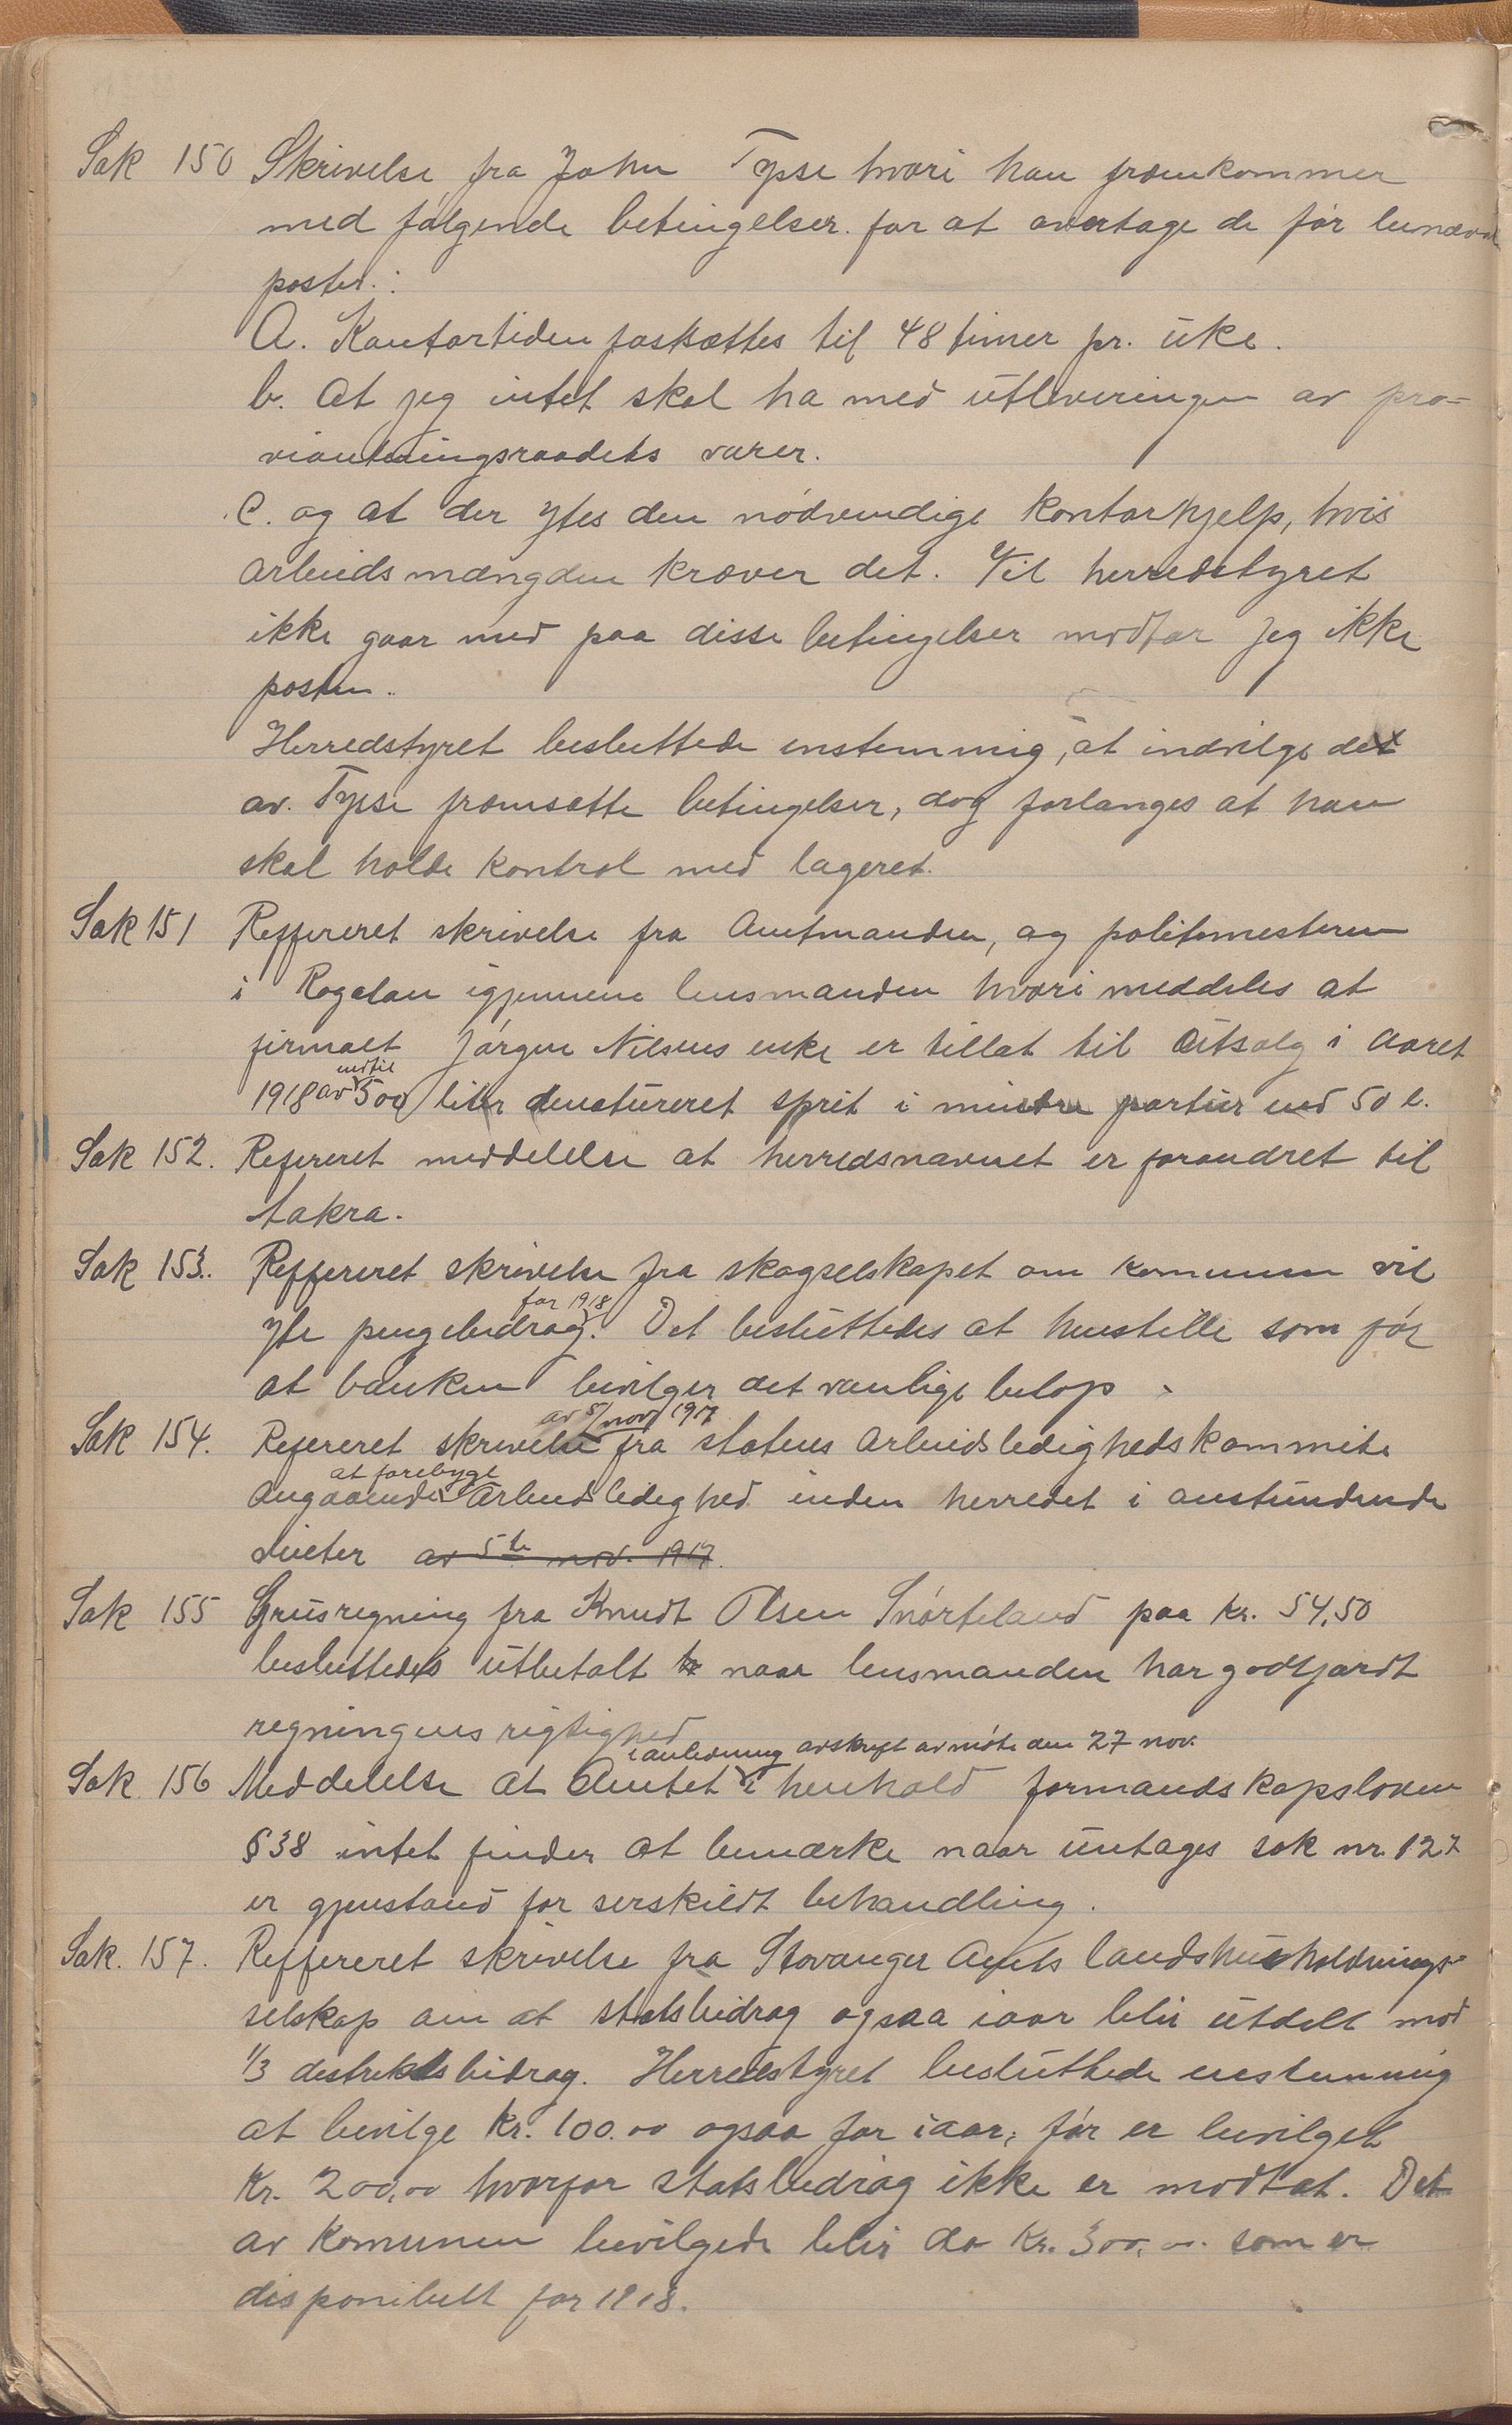 Sak 150 Skrivelse fra John Typse hvori han fræmkommer
med følgende betingelser for at overtage de før
poster:
A. Kontortiden fastsættes til 48 timer pr. uke.
b. At jeg intet skal ha med utleveringen av pro-
viantningsraadets varer.
C. og at der ytes den nødvendige Kontorhjelp, hvis
arbeidsmængden kræver det. Vil herredstyret
ikke gaar med paa disse betingelser modtar jeg ikke
posten.
Herredstyret besluttede enstemmig, at indvilge de
av Typse fræmsatte betingelser, dog forlanges at han
skal holde kontrol med lageret.
Sak 151 Reffereret skrivelse fra Amtmanden, og politimesteren
i Rogalan igjennem lensmanden hvori meddeles at
firmaet Jørgen Nilsens enke er tillat til Utsalg i Aaret
1918 av indtil 500 liter denatureret sprit i mindre partier end 50 l.
Sak 152. Refereret meddelelse at herredsnavnet er forandret til
Aakra.
Sak 153. Reffereret skrivelse fra skogselskapet om kommunen vil
yte pengebidrag for 1918. Det besluttedes at henstille som før
at banken bevilger det vanlige beløp.
Sak 154. Refereret skrivelse av 5/nov 1917 fra statens Arbeidsledighedskommite
Angaaende at forebygge Arbeidsledighed inden herredet i anstundende
vinter av 5te nov. 1917.
Sak 155 Grusregning fra Knudt Olsen Snørteland paa kr. 54,50
besluttedes utbetalt naar lensmanden har godtjordt
regningens rigtighed
Sak 156 Meddelelse at Amtet i anledning avskrift av møte den 27 nov. i henhold formandskapsloven
§ 38 intet finder at bemærke naar untages sak nr. 127
er gjenstand for serskildt behandling.
Sak. 157. Reffereret skrivelse fra Stavanger Amts landshusholdnings-
selskap om at statsbidrag ogsaa iaar blir utdelt mod
1/3 destriktsbidrag. Herredstyret besluttede enstemmig
at bevilge Kr. 100.00 ogsaa for iaar, før er bevilget
Kr. 200,00 hvorfor statsbidrag ikke er modtat. Det
av Komunen bevilgede blir da Kr. 300,00. som er
disponibelt for 1918.